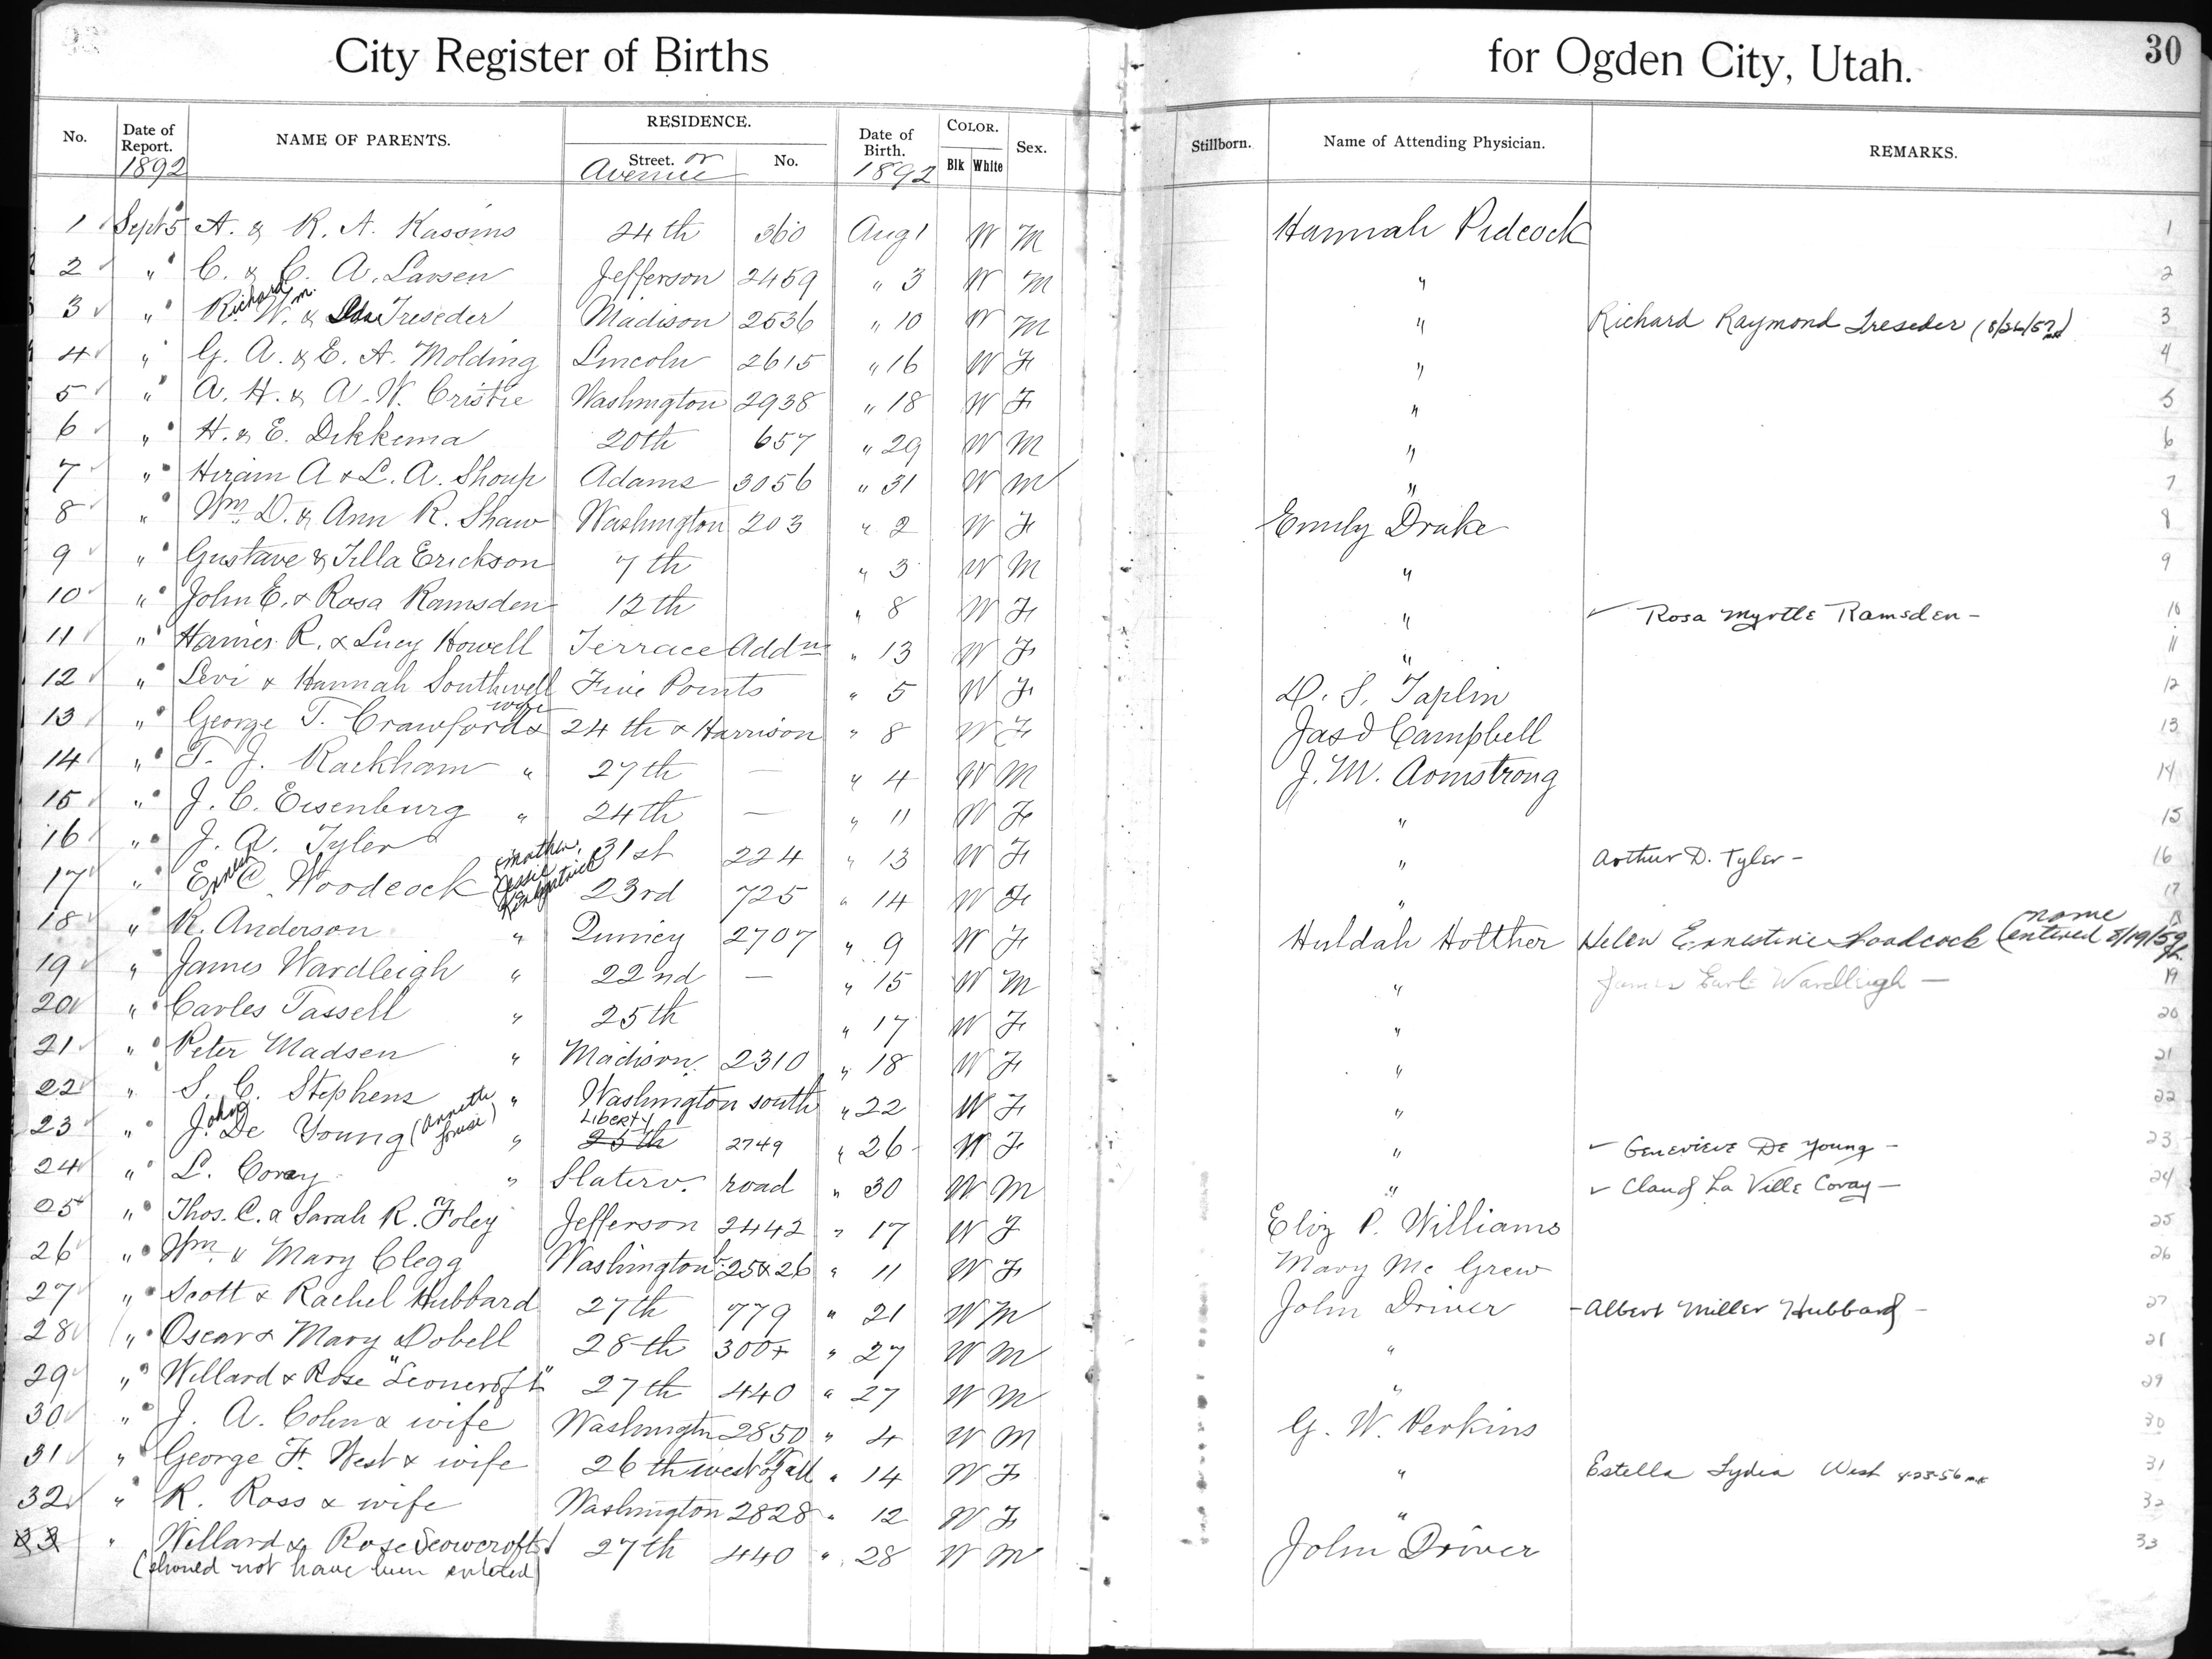 City Register of Births for Ogden City, Utah. 30
No. Date of Report. NAME OF PARENTS. RESIDENCE. Street. or Avenue No. Date of Birth. COLOR. Blk White Sex. Stillborn. Name of Attending Physician. REMARKS.
1892 1892
1 Sept 5 A. & R. A. Kassins 24th 360 Aug 1 W M Hannah Pidcock 1
2 " C. & C. A. Larsen Jefferson 2459 " 3 W M " 2
3 " Richard Wm. & Ada Treseder Madison 2536 " 10 W M " Richard Raymond Treseder 3
4 " G. A. & E. A. Molding Lincoln 2615 " 16 W F " 4
5 " A. H. & A. W. Cristie Washington 2938 " 18 W F " 5
6 " H. & E. Dekkema 20th 657 " 29 W M " 6
7 " Hiram A & L. A. Shoup Adams 3056 " 31 W M " 7
8 " Wm. D. & Ann R. Shaw Washington 203 " 2 W F Emily Drake 8
9 " Gustave & Tilla Erickson 7th " 3 W M " 9
10 " John E. & Rosa Ramsden 12th " 8 W F " ✓ Rosa Myrtle Ramsden - 10
11 " R. & Lucy Howell Terrace Addn " 13 W F " 11
12 " Levi & Hannah Southwell Five Points " 5 W F D. S. Taplin 12
13 " George T. Crawford & wife 24th & Harrison " 8 W F Jas Campbell 13
14 " T. J. Rackham " 27th — " 4 W M J. M. Armstrong 14
15 " J. C. Eisenburg " 24th — " 11 W F " 15
16 " J. A. Tyler 31st 224 " 13 W F " Arthur D. Tyler - 16
17 " C. Woodcock (mother, Jessie Kirkpatrick 23rd 725 " 14 W F " 17
18 " R. Anderson " Quincy 2707 " 9 W F Huldah Holther Helen Ernestine Woodcock (name entered 8/19/59 18
19 " James Wardleigh " 22nd — " 15 W M " James Earl Wardleigh — 19
20 " Carles Tassell " 25th " 17 W F " 20
21 " Peter Madsen " Madison. 2310 " 18 W F " 21
22 " S. C. Stephens " Washington south " 22 W F " 22
23 " John De Young (Annette Louise) " Liberty 25th 2749 " 26 W F " ✓ Genevieve De Young - 23
24 " L. Coray " Slaterv. road " 30 W M " ✓ Claud La Ville Coray — 24
25 " Thos. C. & Sarah R. Foley Jefferson 2442 " 17 W F Eliz P. Williams 25
26 " Wm. & Mary Clegg Washington b. 25 & 26 " 11 W F Mary Mc Grew 26
27 " Scott & Rachel Hubbard 27th 779 " 21 W M John Driver - Albert Miller Hubbard - 27
28 " Oscar & Mary Dobell 28th 300+ " 27 W M " 28
29 " Willard & Rose 27th 440 " 27 W M " 29
30 " J. A. Cohn & wife Washingtn 2850 " 4 W M G. W. Perkins 30
31 " George F. West & wife 26th west of Wall " 14 W F " Estella Lydia West 4-23-56 31
32 " R. Ross & wife Washington 2828 " 12 W F " 32
33 " Willard & Rose Scowcroft 27th 440 " 28 W M John Driver 33
(should not have been entered)